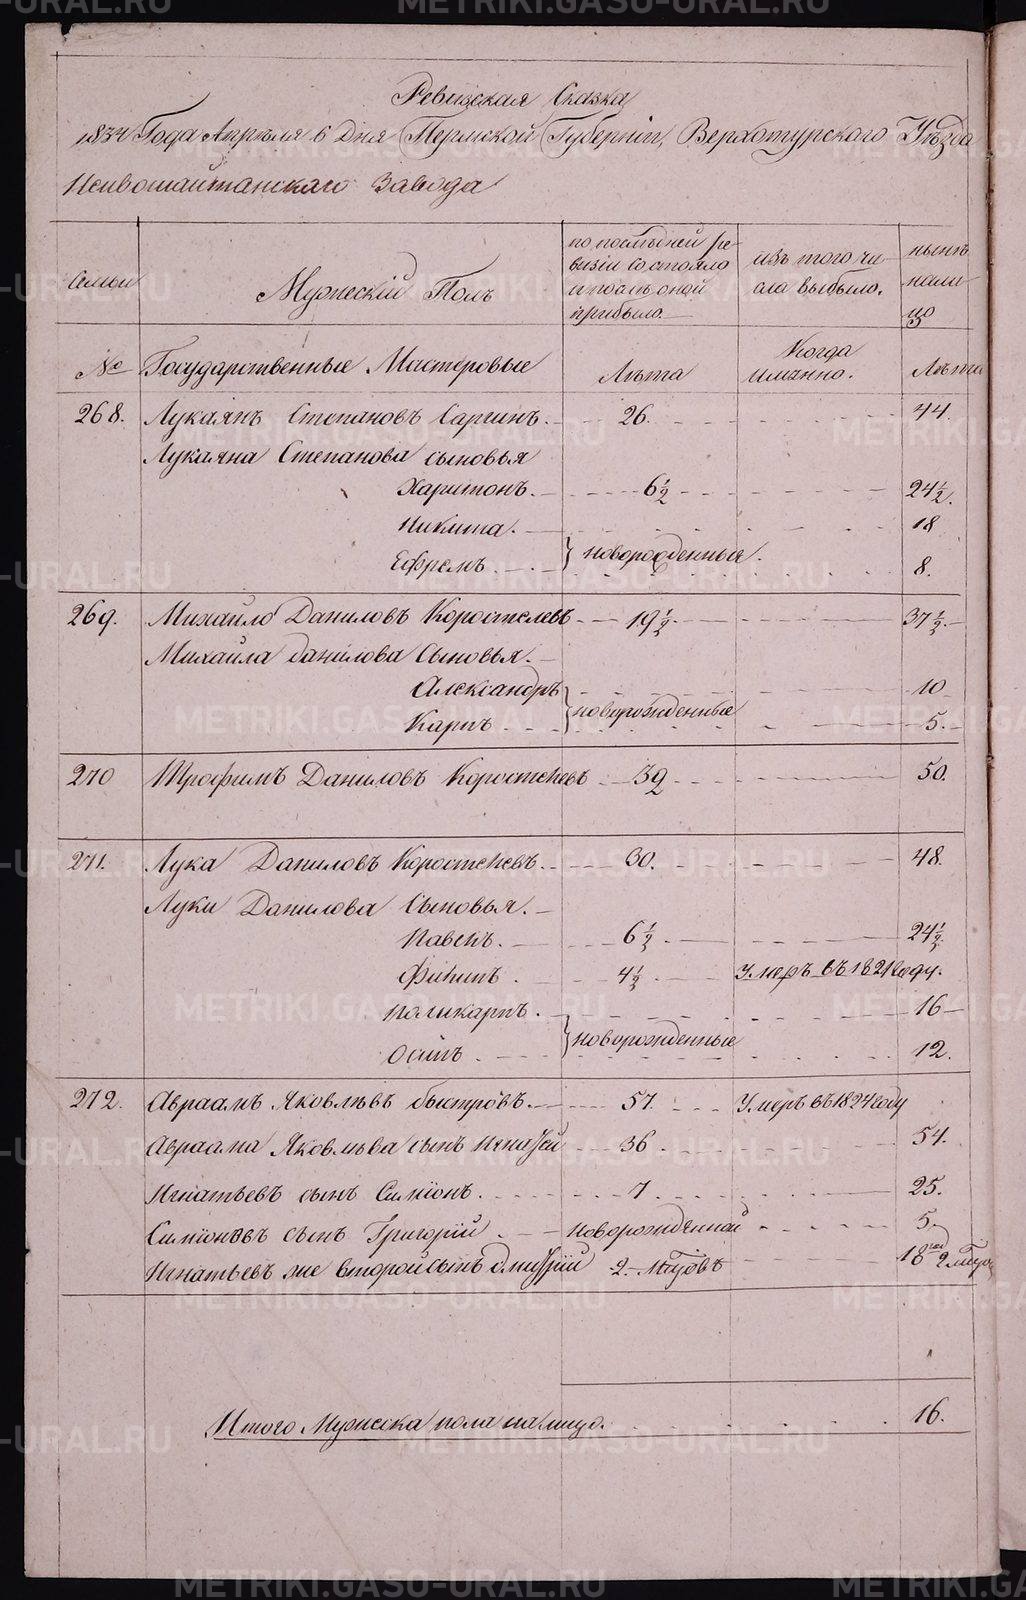 Ревизская Сказка
1834 Года Апреля 6 Дня Пермской Губернiи, Верхотурского Уезда
Невьошайтанскаго Завода
Семьи
Мужескiй Полъ
по последней ре-
визiи состояло
и после оной
прибыло.
изъ того чи-
сла выбыло.
ныне
нали-
цо
№ Государственные Мастеровые Лета Когда именно. Лета
268. Лукаянъ Степановъ Саргинъ. 26. 44
Лукаяна Степанова сыновья
Харитонъ. 6½ 24½.
Никита. 18
Ефремъ. новорожденные. 8.
269. Михайло Даниловъ Коростелевъ 19½. 37½.
Михайла данилова Сыновья.
Александръ 10
новорожденные
Карпъ. 5.
270 Трофимъ Даниловъ Коростелевъ 32 50.
271. Лука Даниловъ Коростелевъ. 30. 48.
Луки Данилова Сыновья.
Павелъ. 6½. 24½.
Филипъ. 4½. Умеръ въ 1821 году.
Поликарпъ. 16
новорожденные
Осипъ. 12.
272. Авраамъ Яковлевъ быстровъ. 57. Умеръ въ 1824 году
Авраама Яковлева сынъ Игнатей 36. 54.
Игнатьевъ сынъ Симiонъ. 7 25.
Симiоновъ сынъ Григорiй. Новорожденной 5.
Игнатьевъ же второй сынъ дмитрiй 2. М. 18 2 М.
Итого Мужеска пола налицо. 16.
METRIKI.GASO-URAL.RU